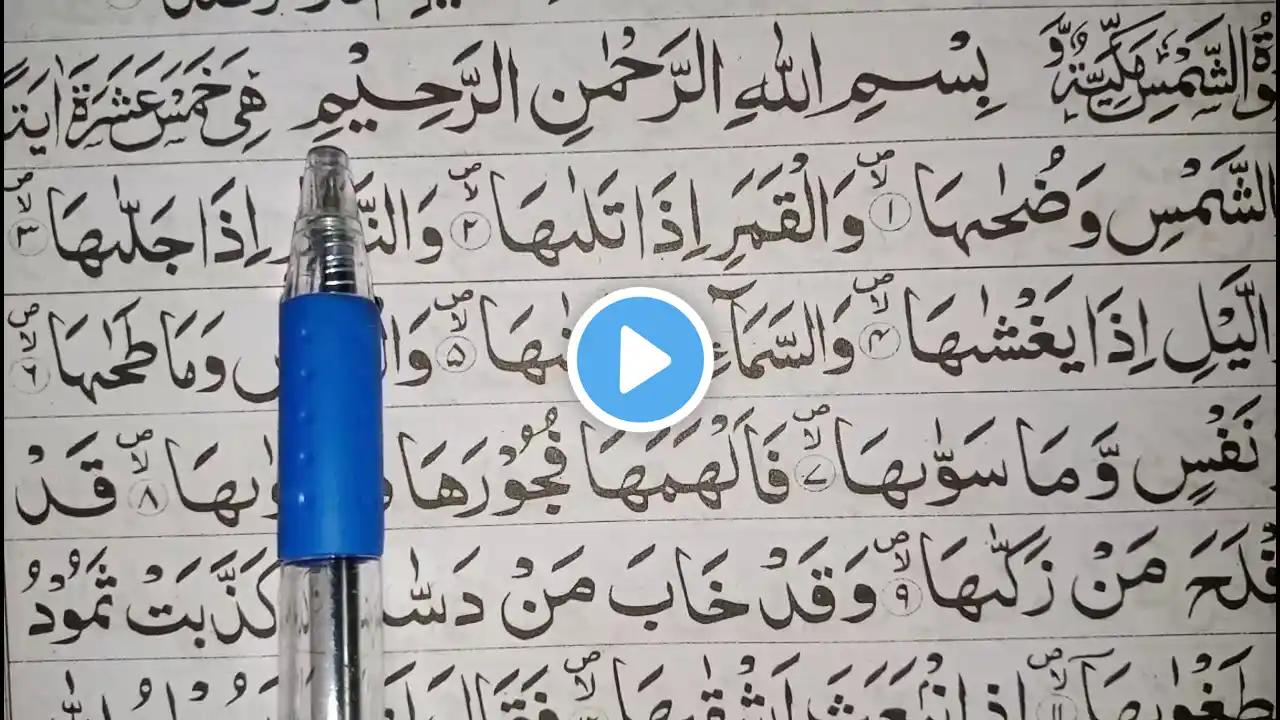 وَالشَّمْسِ مَكِّيَّةٌ وَّ بِسْمِ اللهِ الرَّحْمٰنِ الرَّحِيْمِ هِىَ خَمْسَ عَشَرَةَ اٰيَةً
الشَّمْسِ وَضُحٰىهَا ۪ۙ ۱ وَالْقَمَرِ اِذَا تَلٰىهَا ۪ۙ ۲ اِذَا جَلّٰىهَا ۪ۙ ۳
الَّيْلِ اِذَا يَغْشٰىهَا ۪ۙ ۴ وَالسَّمَآءِ ۪ۙ ۵ وَمَا طَحٰىهَا ۪ۙ ۶
نَفْسٍ وَّمَا سَوّٰىهَا ۪ۙ ۷ فَاَلْهَمَهَا فُجُوْرَهَا ۪ۙ ۸ قَدْ
فْلَحَ مَنْ زَكّٰىهَا ۪ۙ ۹ وَقَدْ خَابَ مَنْ كَذَّبَتْ ثَمُوْدُ
۱۱ اِذِ انْۢبَعَثَ اَشْقٰىهَا ۪ۙ